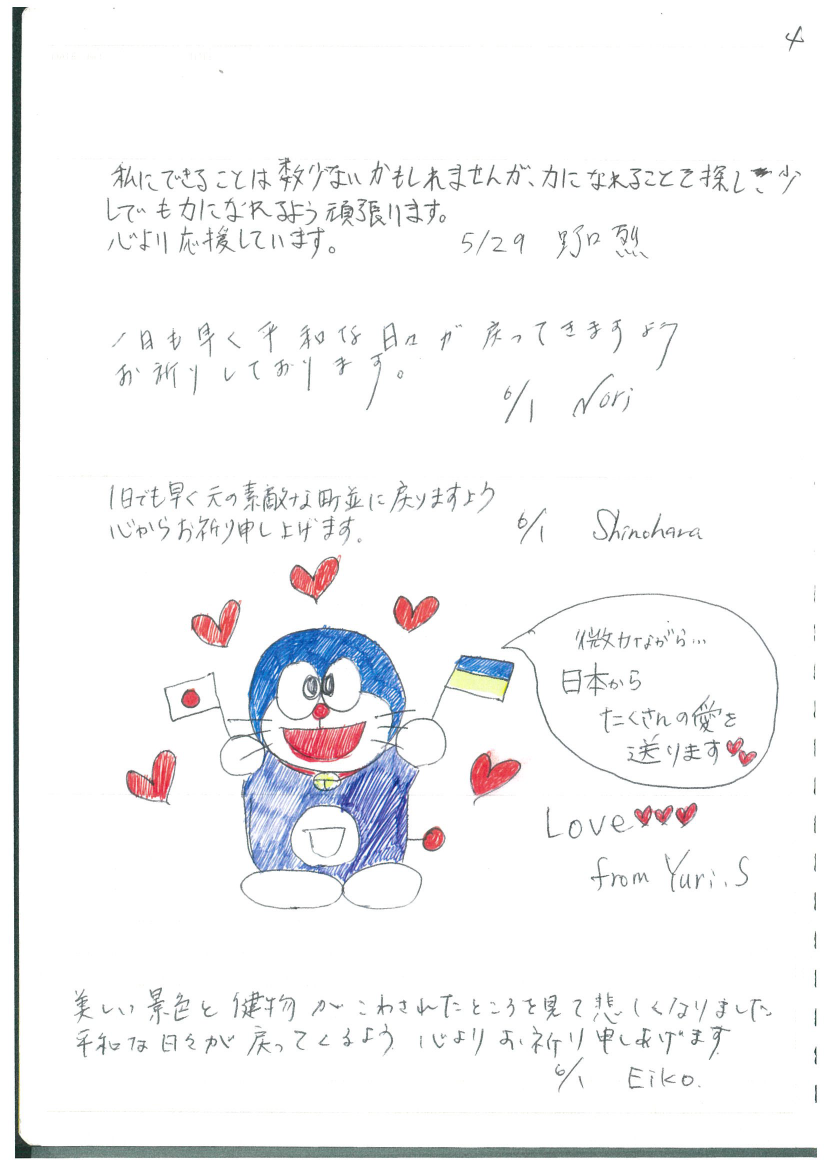 4
私にできることは数少ないかもしれませんが、力になれることを探して少
しでも力になれるよう頑張ります。
心より応援しています。 5/29 野口 烈
1日も早く平和な日々が戻ってきますよう
お祈りしております。
6/1 Nori
1日でも早く元の素敵な町並に戻りますよう
心からお祈り申し上げます。 6/1 Shinohara
微力ながら…
日本から
たくさんの愛を
送ります
Love
from Yuri.S
美しい景色と健物がこわされたところを見て悲しくなりました
平和な日々が戻ってくるよう 心よりお祈り申しあげます
6/1 Eiko.